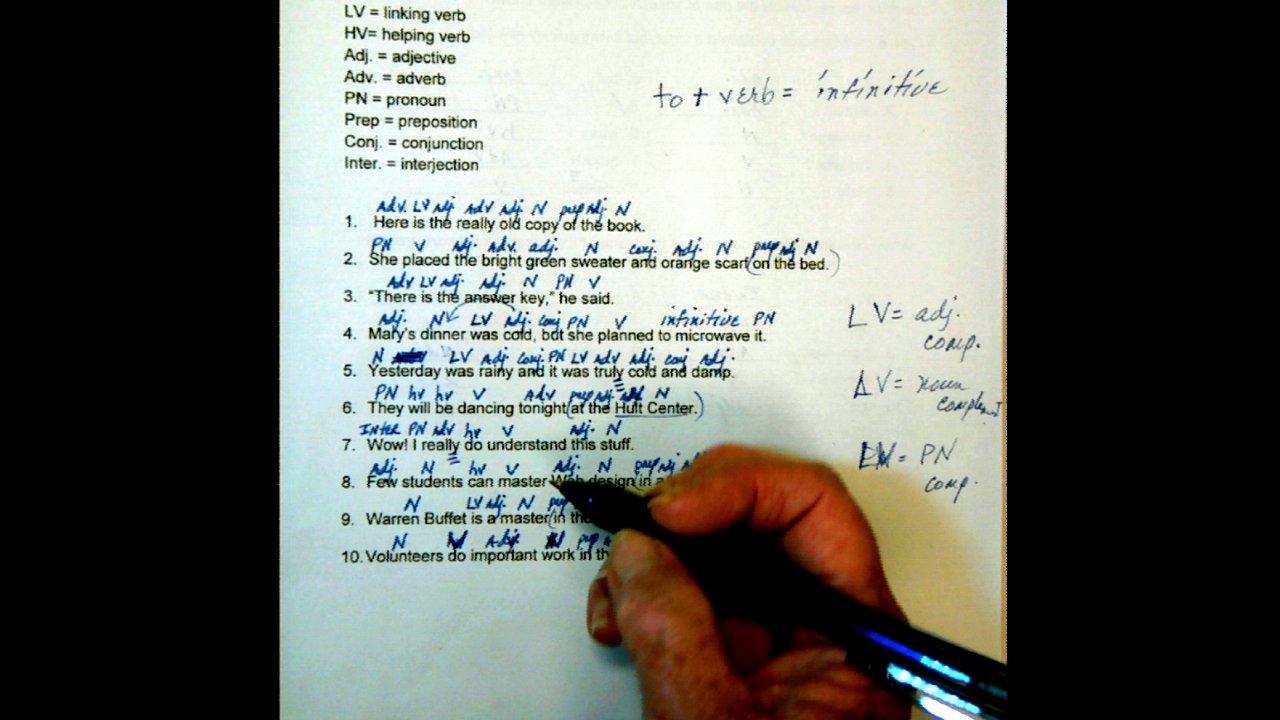 LV = linking verb
HV= helping verb
Adj. = adjective
Adv. = adverb
PN = pronoun
Prep = preposition
Conj. = conjunction
Inter. = interjection
to + verb = infinitive
Adv. LV adj. Adv Adj. N prep adj. N
1. Here is the really old copy of the book.
PN V Adj. Adv. adj. N conj. Adj. N prep adj N
2. She placed the bright green sweater and orange scarf (on the bed.)
Adv LV adj. Adj. N PN V
3. “There is the answer key,” he said.
Adj. N LV Adj. conj PN V infinitive PN
4. Mary's dinner was cold, but she planned to microwave it.
N LV Adj conj. PN LV adv Adj. conj Adj.
5. Yesterday was rainy and it was truly cold and damp.
PN hv hv V Adv prep adj. N
6. They will be dancing tonight (at the Hult Center.)
INTER PN adv hv V adj. N
7. Wow! I really do understand this stuff.
Adj. N hv V Adj. N prep adj
8. Few students can master Web design in a
N LV adj. N
9. Warren Buffet is a master (in the
N V adj. N prep
10. Volunteers do important work in th
LV = adj.
comp.
LV = noun
complement
LV = PN
comp.